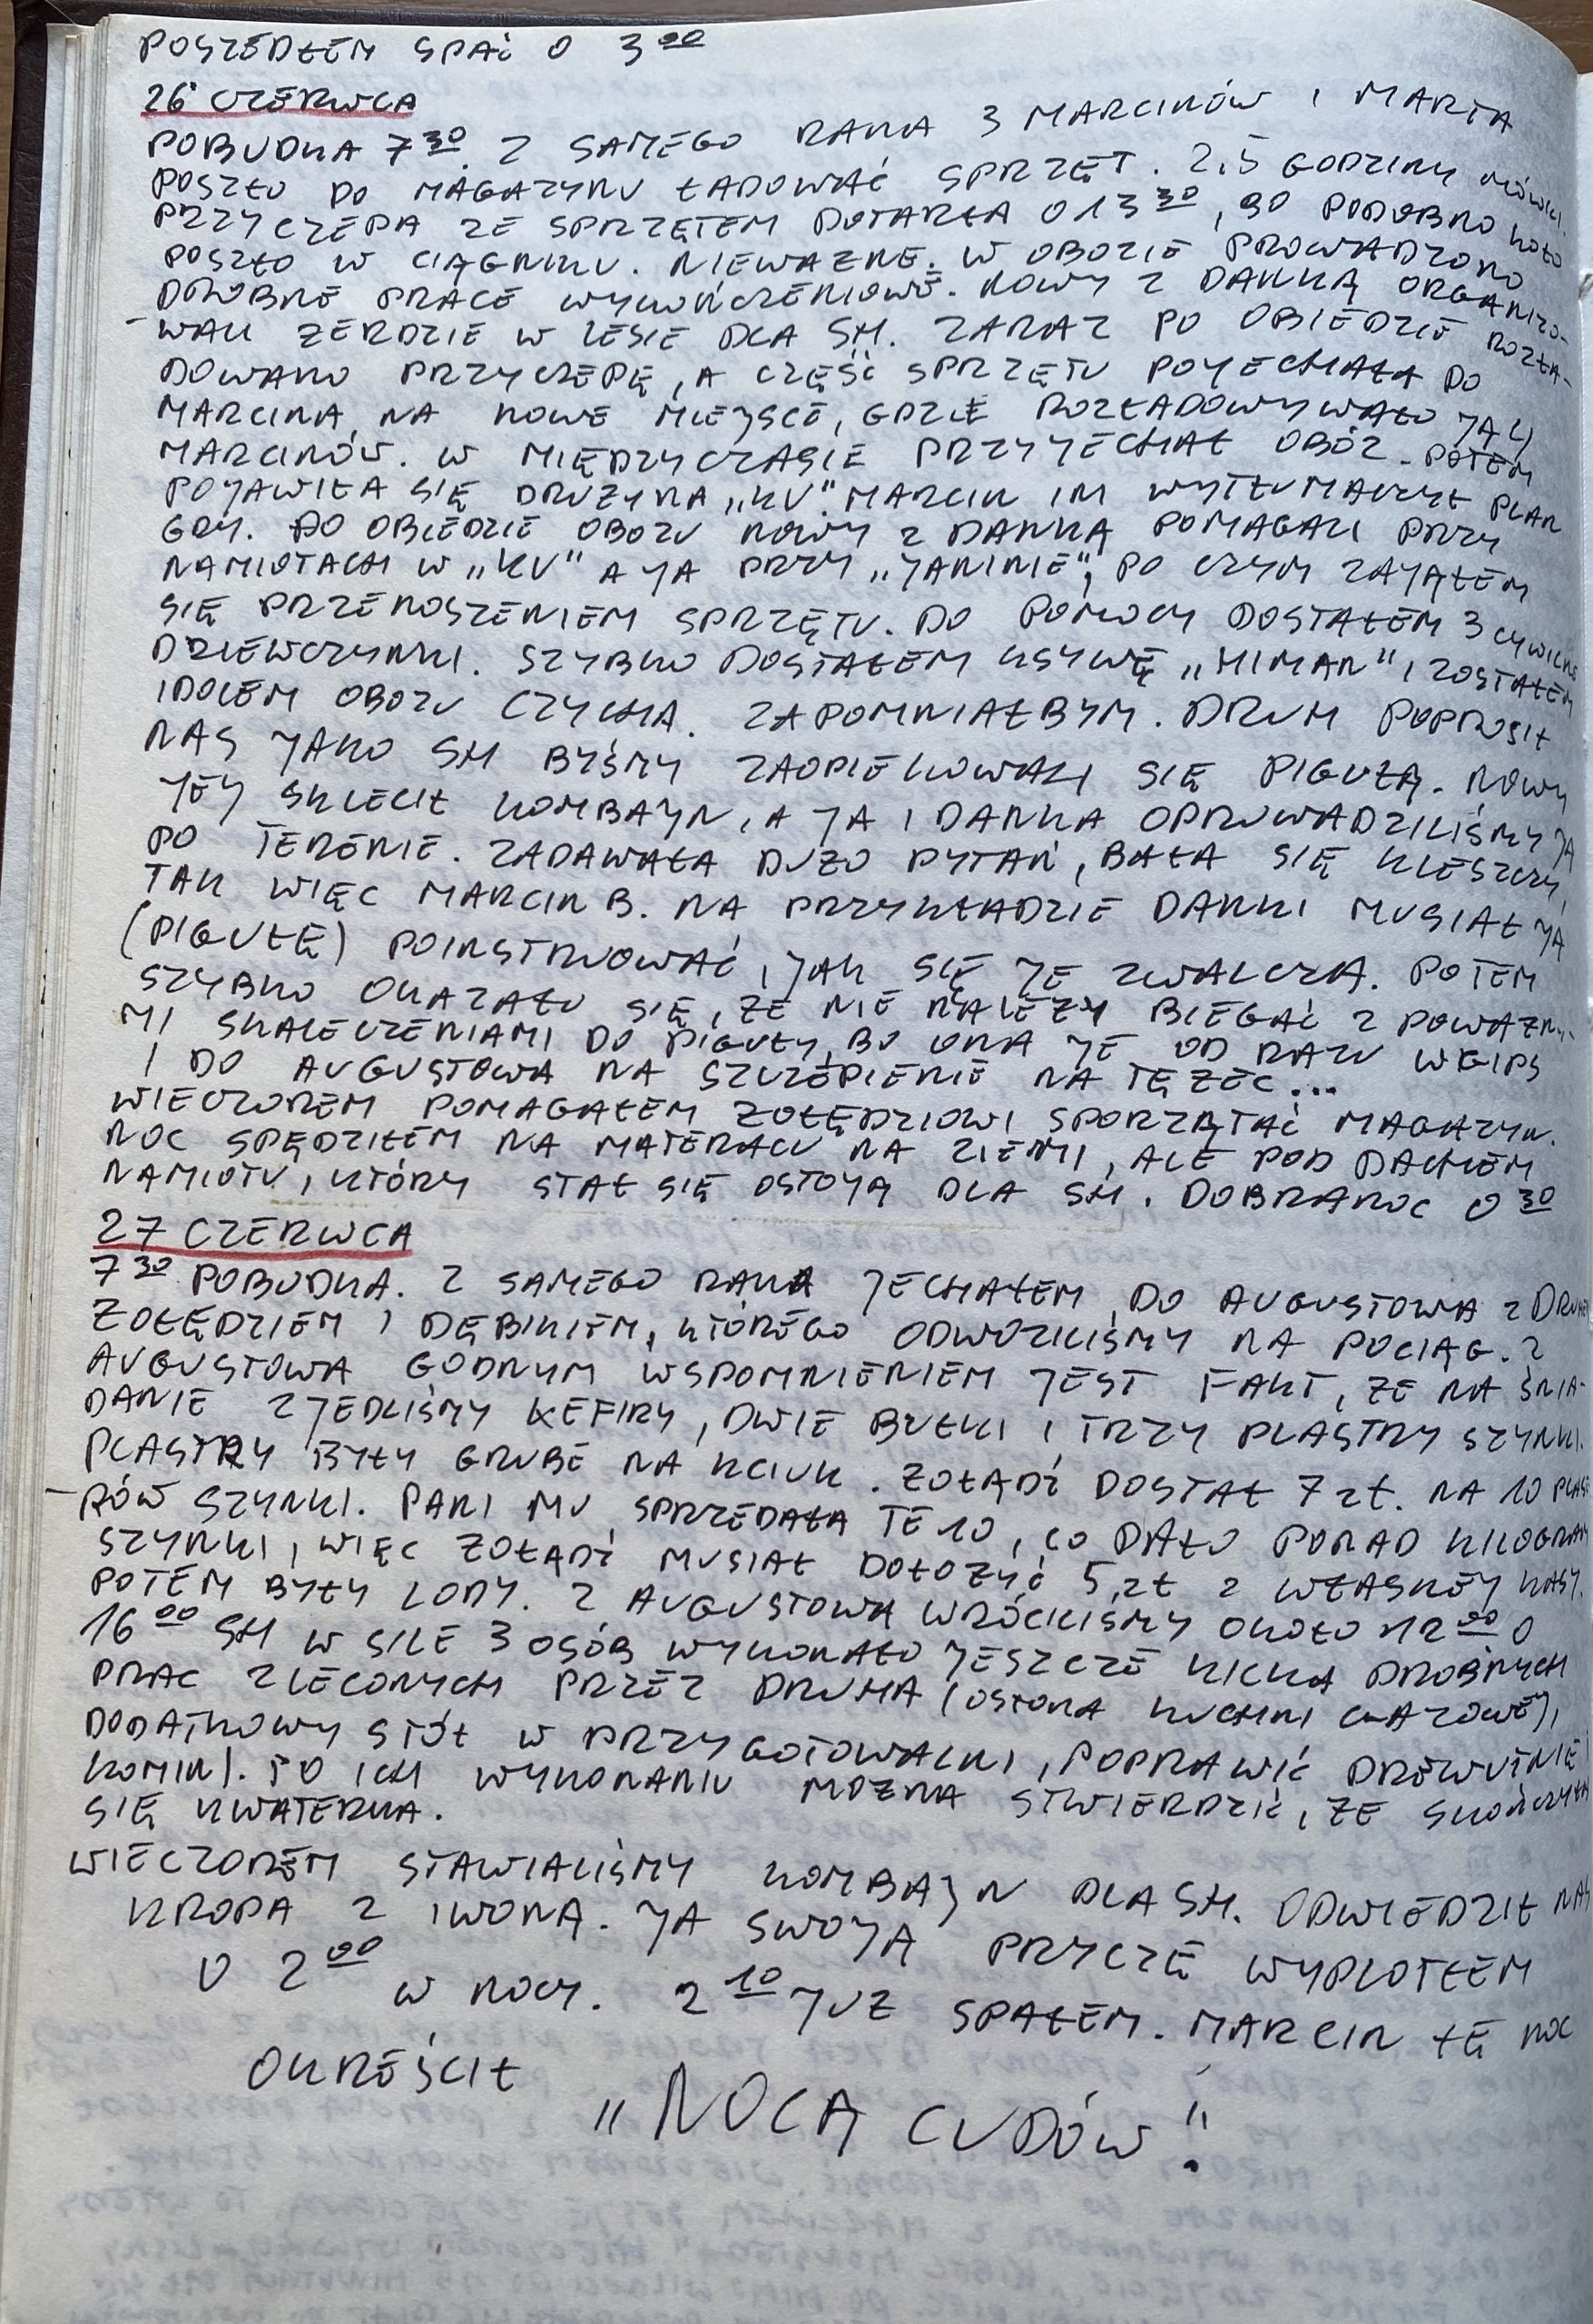 POSZEDŁEM SPAĆ O 3 00
26 CZERWCA
POBUDKA 7 30. Z SAMEGO RANA 3 MARCINÓW I MARTA
POSZŁO DO MAGAZYNU ŁADOWAĆ SPRZĘT. 2,5 GODZINY MÓWILI.
PRZYCZEPA ZE SPRZĘTEM DOTARŁA O 13 30, BO PODOBNO KOŁO
POSZŁO W CIĄGNIKU. NIEWAŻNE. W OBOZIE PROWADZONO
DROBNE PRACE WYKOŃCZENIOWE. NOWY Z DANKĄ ORGANIZO-
-WALI ŻERDZIE W LESIE DLA SH. ZARAZ PO OBIEDZIE ROZŁA-
DOWANO PRZYCZEPĘ, A CZĘŚĆ SPRZĘTU POJECHAŁA DO
MARCINA, NA NOWE MIEJSCE, GDZIE ROZŁADOWYWAŁO JĄ 4
MARCINÓW. W MIĘDZYCZASIE PRZYJECHAŁ OBÓZ. POTEM
POJAWIŁA SIĘ DRUŻYNA „KV". MARCIN IM WYTŁUMACZYŁ PLAN
GRY. PO OBIEDZIE OBOZU NOWY Z DANKĄ POMAGALI PRZY
NAMIOTACH W „KV" A JA PRZY „JANINIE", PO CZYM ZAJĄŁEM
SIĘ PRZENOSZENIEM SPRZĘTU. DO POMOCY DOSTAŁEM 3 CYWILNE
DZIEWCZYNKI. SZYBKO DOSTAŁEM KSYWĘ „HIMAN" I ZOSTAŁEM
IDOLEM OBOZU CZYCHA. ZAPOMNIAŁBYM. DRUH POPROSIŁ
NAS JAKO SH BYŚMY ZAOPIEKOWALI SIĘ PIGUŁĄ. NOWY
JEJ SKLECIŁ KOMBAJN, A JA I DANKA OPROWADZILIŚMY JĄ
PO TERENIE. ZADAWAŁA DUŻO PYTAŃ, BAŁA SIĘ KLESZCZY,
TAK WIĘC MARCIN B. NA PRZYKŁADZIE DANKI MUSIAŁ JĄ
(PIGUŁĘ) POINSTRUOWAĆ, JAK SIĘ JE ZWALCZA. POTEM
SZYBKO OKAZAŁO SIĘ, ŻE NIE NALEŻY BIEGAĆ Z POWAŻNY-
MI SKALECZENIAMI DO PIGUŁY, BO ONA JE OD RAZU W GIPS
I DO AUGUSTOWA NA SZCZEPIENIE NA TĘŻEC...
WIECZOREM POMAGAŁEM ŻOŁĘDZIOWI SPORZĄTAĆ MAGAZYN.
NOC SPĘDZIŁEM NA MATERACU NA ZIEMI, ALE POD DACHEM
NAMIOTU, KTÓRY STAŁ SIĘ OSTOJĄ DLA SH. DOBRANOC 0 30
27 CZERWCA
7 30 POBUDKA. Z SAMEGO RANA JECHAŁEM DO AUGUSTOWA Z DRUHEM
ŻOŁĘDZIEM I DĘBIKIEM, KTÓREGO ODWOZILIŚMY NA POCIĄG. Z
AUGUSTOWA GODNYM WSPOMNIENIEM JEST FAKT, ŻE NA ŚNIA-
DANIE ZJEDLIŚMY KEFIRY, DWIE BUŁKI I TRZY PLASTRY SZYNKI.
PLASTRY BYŁY GRUBE NA KCIUK. ŻOŁĄDŹ DOSTAŁ 7 ZŁ. NA 10 PLAST
-RÓW SZYNKI. PANI MU SPRZEDAŁA TE 10, CO DAŁO PONAD KILOGRAM
SZYNKI, WIĘC ŻOŁĄDŹ MUSIAŁ DOŁOŻYĆ 5 ZŁ Z WŁASNEJ KASY.
POTEM BYŁY LODY. Z AUGUSTOWA WRÓCILIŚMY OKOŁO 12 00 O
16 00 SH W SILE 3 OSÓB WYKONAŁO JESZCZE KILKA DROBNYCH
PRAC ZLECONYCH PRZEZ DRUHA (OSŁONA KUCHNI GAZOWEJ,
DODATKOWY STÓŁ W PRZYGOTOWALNI, POPRAWIĆ DREWUTNIĘ I
KOMIN). PO ICH WYKONANIU MOŻNA STWIERDZIĆ, ŻE SKOŃCZYŁA
SIĘ KWATERKA.
WIECZOREM STAWIALIŚMY KOMBAJN DLA SH. ODWIEDZIŁ NAS
KROPA Z IWONĄ. JA SWOJĄ PRYCZĘ WYPLOTŁEM
O 2 00 W NOCY. 2 10 JUŻ SPAŁEM. MARCIN TĘ NOC
OKREŚLIŁ
„NOCĄ CUDÓW"!